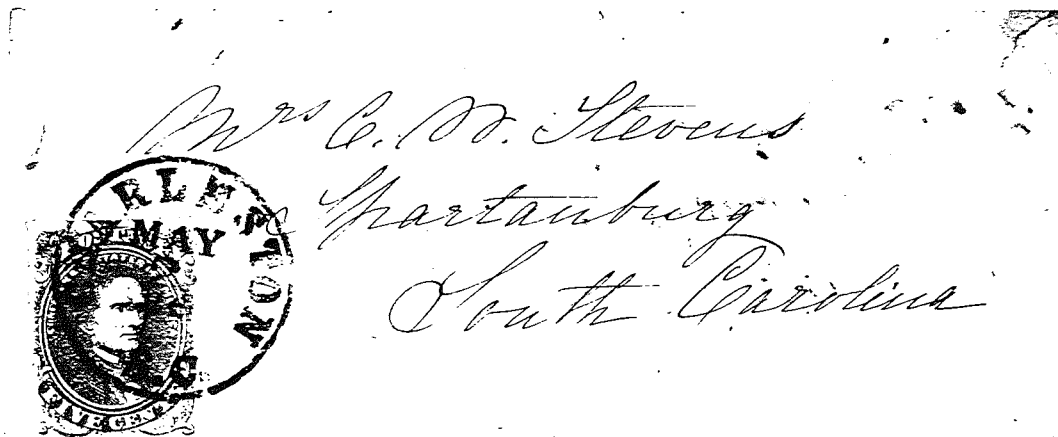 Mrs C. W. Stevens
Spartanburg
South Carolina
CHARLESTON
MAY
S.C.